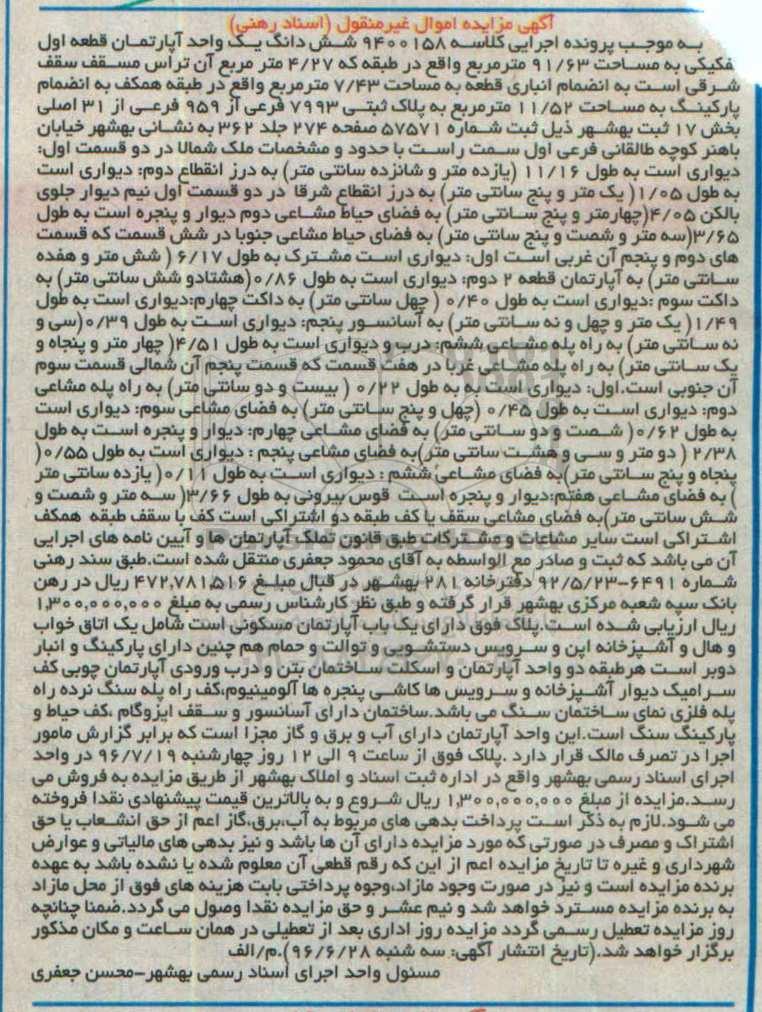 آگهی مزایده اموال غیرمنقول (اسناد رهنی)
به موجب پرونده اجرایی کلاسه ۹۴۰۰۱۵۸ شش دانگ یک واحد آپارتمان قطعه اول
تفکیکی به مساحت ۹۱/۶۳ مترمربع واقع در طبقه که ۴/۲۷ متر مربع آن تراس مسقف سقف
شرقی است به انضمام انباری قطعه به مساحت ۷/۴۳ مترمربع واقع در طبقه همکف به انضمام
پارکینگ به مساحت ۱۱/۵۲ مترمربع به پلاک ثبتی ۷۹۹۳ فرعی از ۹۵۹ فرعی از ۳۱ اصلی
بخش ۱۷ ثبت بهشهر ذیل ثبت شماره ۵۷۵۷۱ صفحه ۲۷۴ جلد ۳۶۲ به نشانی بهشهر خیابان
باهنر کوچه طالقانی فرعی اول سمت راست با حدود و مشخصات ملک شمالا در دو قسمت اول:
دیواری است به طول ۱۱/۱۶ (یازده متر و شانزده سانتی متر) به درز انقطاع دوم: دیواری است
به طول ۱/۰۵( یک متر و پنج سانتی متر) به درز انقطاع شرقا در دو قسمت اول نیم دیوار جلوی
بالکن ۴/۰۵(چهارمتر و پنج سانتی متر) به فضای حیاط مشاعی دوم دیوار و پنجره است به طول
۳/۶۵(سه متر و شصت و پنج سانتی متر) به فضای حیاط مشاعی جنوبا در شش قسمت که قسمت
های دوم و پنجم آن غربی است اول: دیواری است مشترک به طول ۶/۱۷ ( شش متر و هفده
سانتی متر) به آپارتمان قطعه ۲ دوم: دیواری است به طول ۰/۸۶(هشتادو شش سانتی متر) به
داکت سوم :دیواری است به طول ۰/۴۰ ( چهل سانتی متر) به داکت چهارم:دیواری است به طول
۱/۴۹( یک متر و چهل و نه سانتی متر) به آسانسور پنجم: دیواری است به طول ۰/۳۹(سی و
نه سانتی متر) به راه پله مشاعی ششم: درب و دیواری است به طول ۴/۵۱( چهار متر و پنجاه و
یک سانتی متر) به راه پله مشاعی غربا در هفت قسمت که قسمت پنجم آن شمالی قسمت سوم
آن جنوبی است.اول: دیواری است به به طول ۰/۲۲ ( بیست و دو سانتی متر) به راه پله مشاعی
دوم: دیواری است به طول ۰/۴۵ (چهل و پنج سانتی متر) به فضای مشاعی سوم: دیواری است
به طول ۰/۶۲( شصت و دو سانتی متر) به فضای مشاعی چهارم: دیوار و پنجره است به طول
۲/۳۸ ( دو متر و سی و هشت سانتی متر)به فضای مشاعی پنجم : دیواری است به طول ۰/۵۵(
پنجاه و پنج سانتی متر)به فضای مشاعی ششم : دیواری است به طول ۰/۱۱( یازده سانتی متر
) به فضای مشاعی هفتم:دیوار و پنجره است قوس بیرونی به طول ۳/۶۶( سه متر و شصت و
شش سانتی متر)به فضای مشاعی سقف یا کف طبقه دو اشتراکی است کف با سقف طبقه همکف
اشتراکی است سایر مشاعات و مشترکات طبق قانون تملک آپارتمان ها و آیین نامه های اجرایی
آن می باشد که ثبت و صادر مع الواسطه به آقای محمود جعفری منتقل شده است.طبق سند رهنی
شماره ۶۴۹۱-۹۲/۵/۲۳ دفترخانه ۲۸۱ بهشهر در قبال مبلغ ۴۷۲,۷۸۱,۵۱۶ ریال در رهن
بانک سپه شعبه مرکزی بهشهر قرار گرفته و طبق نظر کارشناس رسمی به مبلغ ۱,۳۰۰,۰۰۰,۰۰۰
ریال ارزیابی شده است.پلاک فوق دارای یک باب آپارتمان مسکونی است شامل یک اتاق خواب
و هال و آشپزخانه اپن و سرویس دستشویی و توالت و حمام هم چنین دارای پارکینگ و انبار
دوبر است هرطبقه دو واحد آپارتمان و اسکلت ساختمان بتن و درب ورودی آپارتمان چوبی کف
سرامیک دیوار آشپزخانه و سرویس ها کاشی پنجره ها آلومینیوم،کف راه پله سنگ نرده راه
پله فلزی نمای ساختمان سنگ می باشد.ساختمان دارای آسانسور و سقف ایزوگام ،کف حیاط و
پارکینگ سنگ است.این واحد آپارتمان دارای آب و برق و گاز مجزا است که برابر گزارش مامور
اجرا در تصرف مالک قرار دارد .پلاک فوق از ساعت ۹ الی ۱۲ روز چهارشنبه ۹۶/۷/۱۹ در واحد
اجرای اسناد رسمی بهشهر واقع در اداره ثبت اسناد و املاک بهشهر از طریق مزایده به فروش می
رسد.مزایده از مبلغ ۱,۳۰۰,۰۰۰,۰۰۰ ریال شروع و به بالاترین قیمت پیشنهادی نقدا فروخته
می شود.لازم به ذکر است پرداخت بدهی های مربوط به آب،برق،گاز اعم از حق انشعاب یا حق
اشتراک و مصرف در صورتی که مورد مزایده دارای آن ها باشد و نیز بدهی های مالیاتی و عوارض
شهرداری و غیره تا تاریخ مزایده اعم از این که رقم قطعی آن معلوم شده یا نشده باشد به عهده
برنده مزایده است و نیز در صورت وجود مازاد،وجوه پرداختی بابت هزینه های فوق از محل مازاد
به برنده مزایده مسترد خواهد شد و نیم عشر و حق مزایده نقدا وصول می گردد.ضمنا چنانچه
روز مزایده تعطیل رسمی گردد مزایده روز اداری بعد از تعطیلی در همان ساعت و مکان مذکور
برگزار خواهد شد.(تاریخ انتشار آگهی: سه شنبه ۹۶/۶/۲۸).م/الف
مسئول واحد اجرای اسناد رسمی بهشهر-محسن جعفری